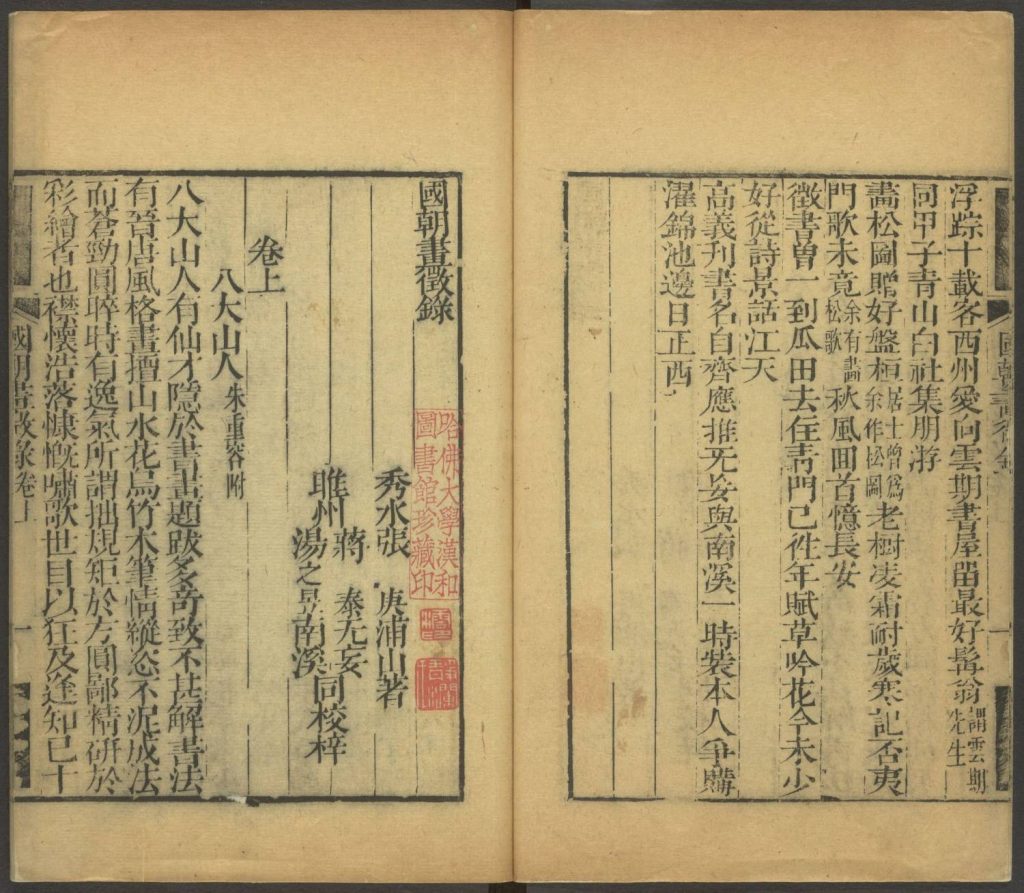 浮踪十載客西州愛向雲期書屋留最好髯翁謂雲期先生
同甲子青山白社集朋游
畵松圖贈好盤桓居士曾爲余作松圖老樹凌霜耐歲寒記否夷
門歌未竟余有畵松歌秋風回首憶長安
徵書曽一到瓜田去住靑門已徃年賦草吟花今未少
好從詩景話江天
高義刊書名自齊應推无妄與南溪一時裝本人爭購
濯錦池邊日正西
國朝畫徵錄
秀水張庚浦山著
蔣泰无妄
睢州
湯之昱南溪
同校梓
卷上
八大山人朱重容附
八大山人有仙才隱於書畫題跋多奇致不甚解書法
有晉唐風格畫擅山水花鳥竹木筆情縱恣不泥成法
而蒼勁圓晬時有逸氣所謂拙規矩於方圓鄙精硏於
彩繪者也襟懷浩落慷慨嘯歌世目以狂及逢知已十
國朝畫徵錄卷上
一
哈佛大學漢和
圖書館珍藏印